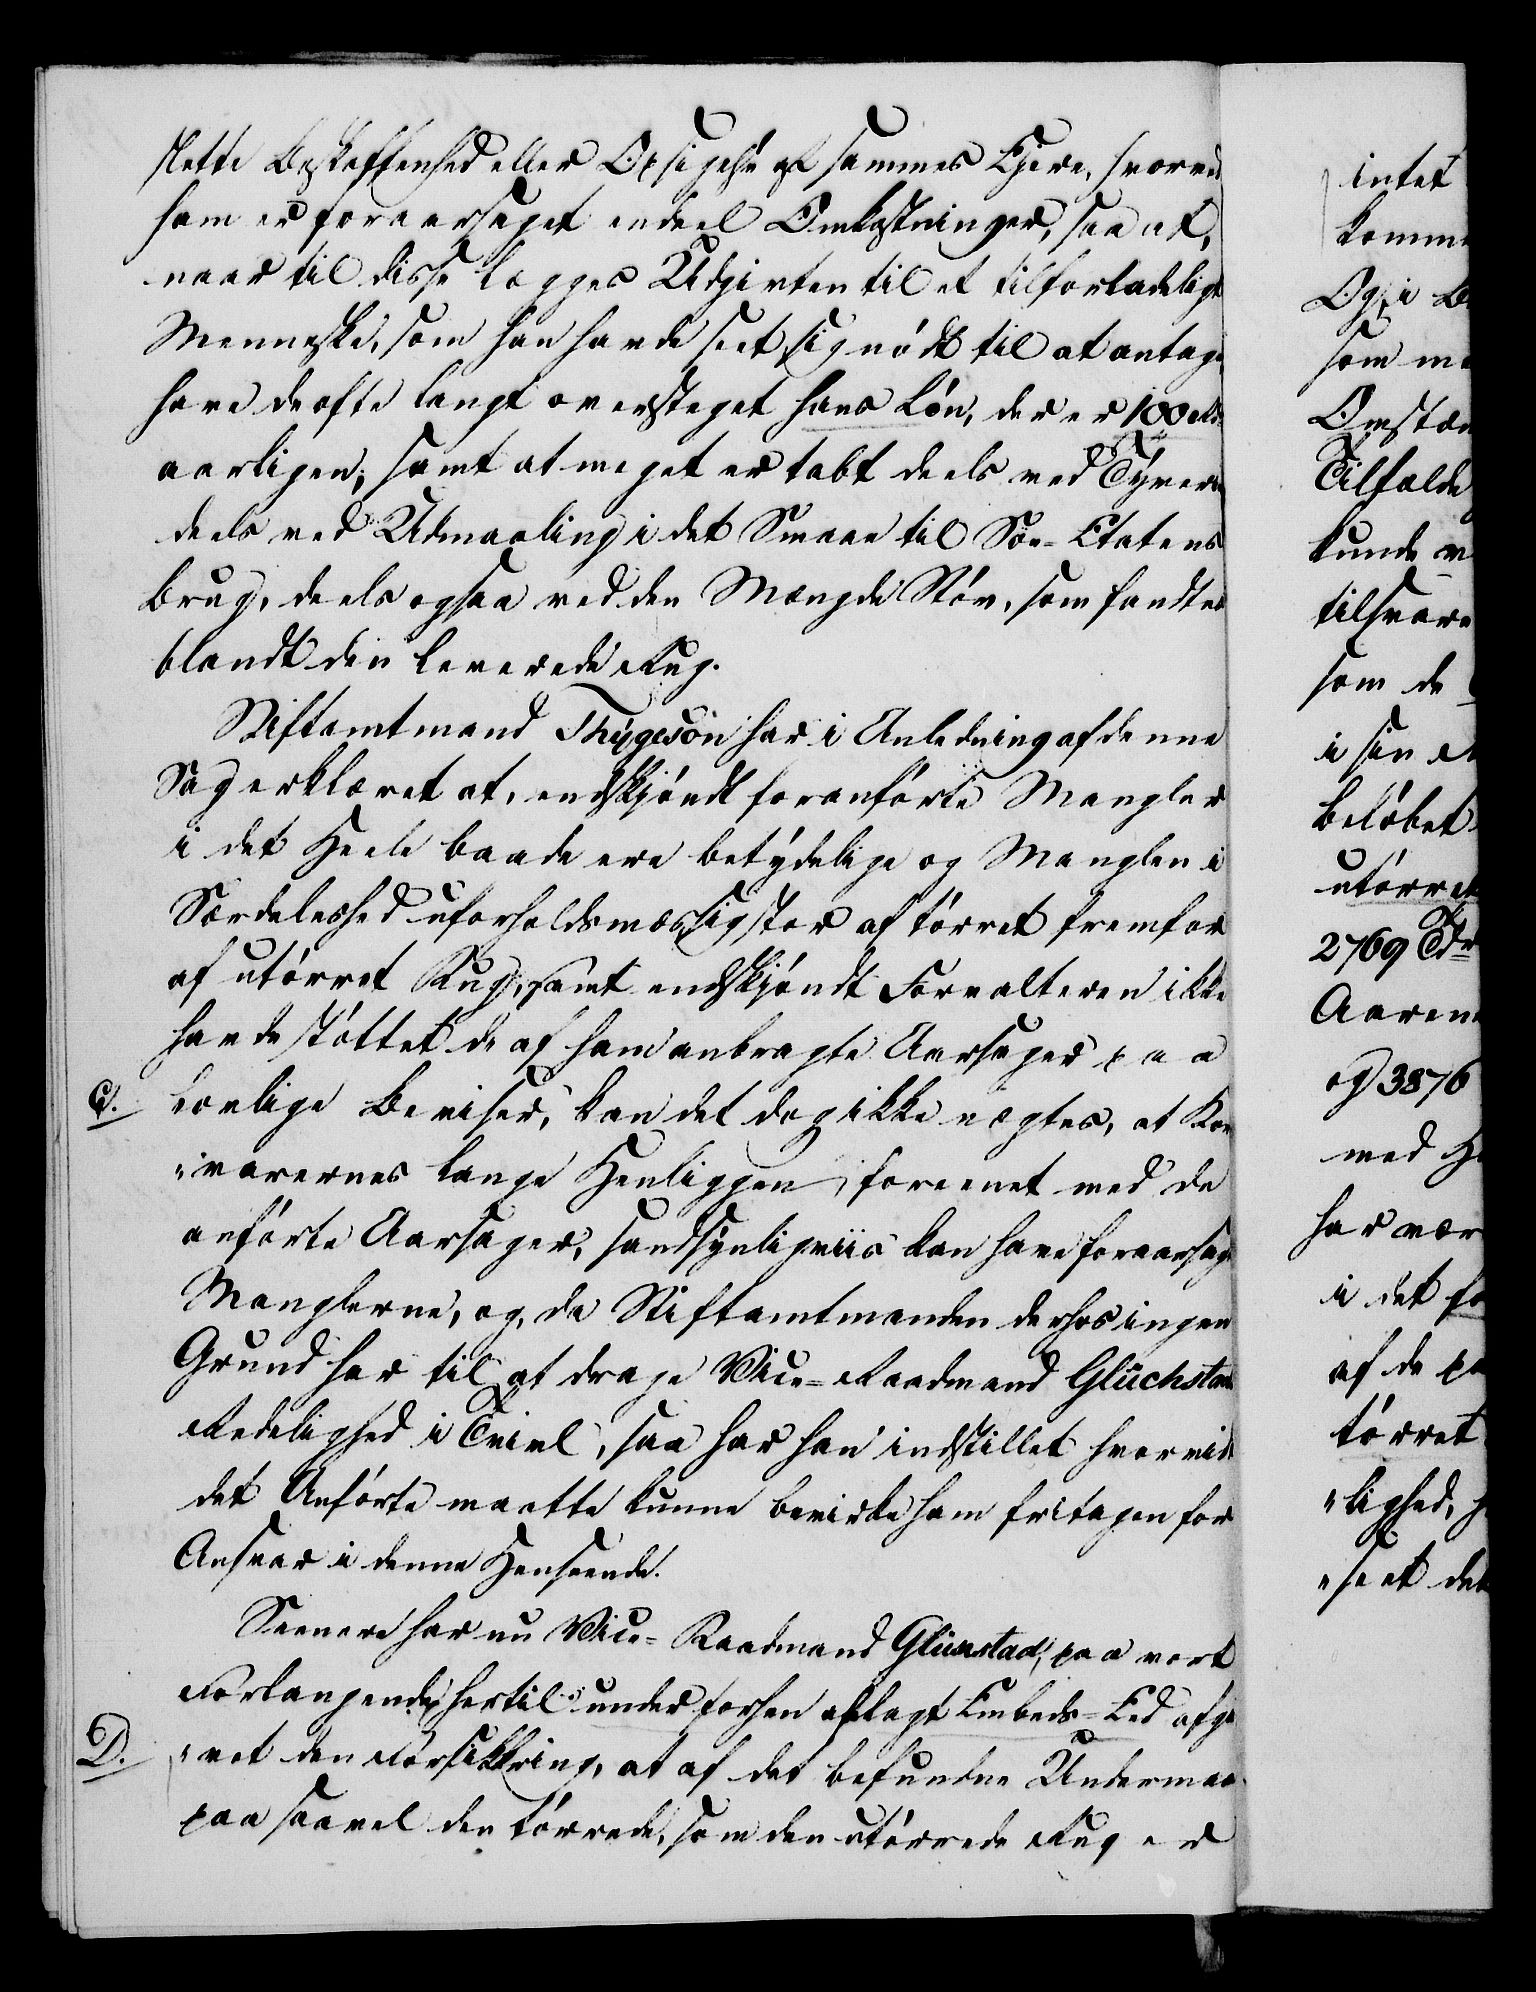 slette Beskaffenhed eller Opsigelse af sammes Ejere, hvorved
ham er foraarsaget endeel Omkostninger, saa at,
naar til disse lægges Udgivten til et tilforladeligt
Menneske, som han havde seet sig nödt til at antage
have de ofte langt oversteget hans Lön, der er 100 Rd
aarligen; samt at meget er tabt deels ved Tyverie
deels ved Udmaaling i det Smaae til Söe-Etatens
Brug, deels ogsaa ved den Mængde Stöv, som fandtes
blandt den leverede Rug.
Stiftamtmand Thygeson har i Anledning af denne
Sag erklæret at, endskjöndt foranförte Mangler
i det Heele baade ere betydelige og Manglen i
Særdeleshed uforholdsmæssig stor af törret fremfor
af utörret Rug, samt endskjöndt Forvalteren ikke
havde stöttet de af ham anbragte Aarsager paa
C. lovlige Beviser, kan det dog ikke nægtes, at Korn
"varernes lange Henliggen, foreenet med de
anförte Aarsager, sandsynligviis kan have foraarsaget
Manglerne, og, da Stiftamtmanden derhos ingen
Grund har til at drage Vice-Raadmand Glückstads
Redelighed i Tvivl, saa har han indstillet hvorvidt
det Anförte maatte kunne bevirke ham fritagen for
Ansvar i denne Henseende.
Seenere har nu Vice-Raadmand Glückstad, paa vort
Forlangende, hertil under forhen aflagt Embeds-Eed afgi
D. "vet den Forsikkring, at af det befundne Undermaal
paa saavel den törrede, som den utörrede Rug er
intet
komm
Og, i B
som m
Omstæn
Tilfælde
kunde v
tilsvare
som de
i sin
belöbet
utörret
2769 Tdr
Aarene
og 3876
med H
har vær
i det fo
af de pa
törret
"lighed, h
"seet det